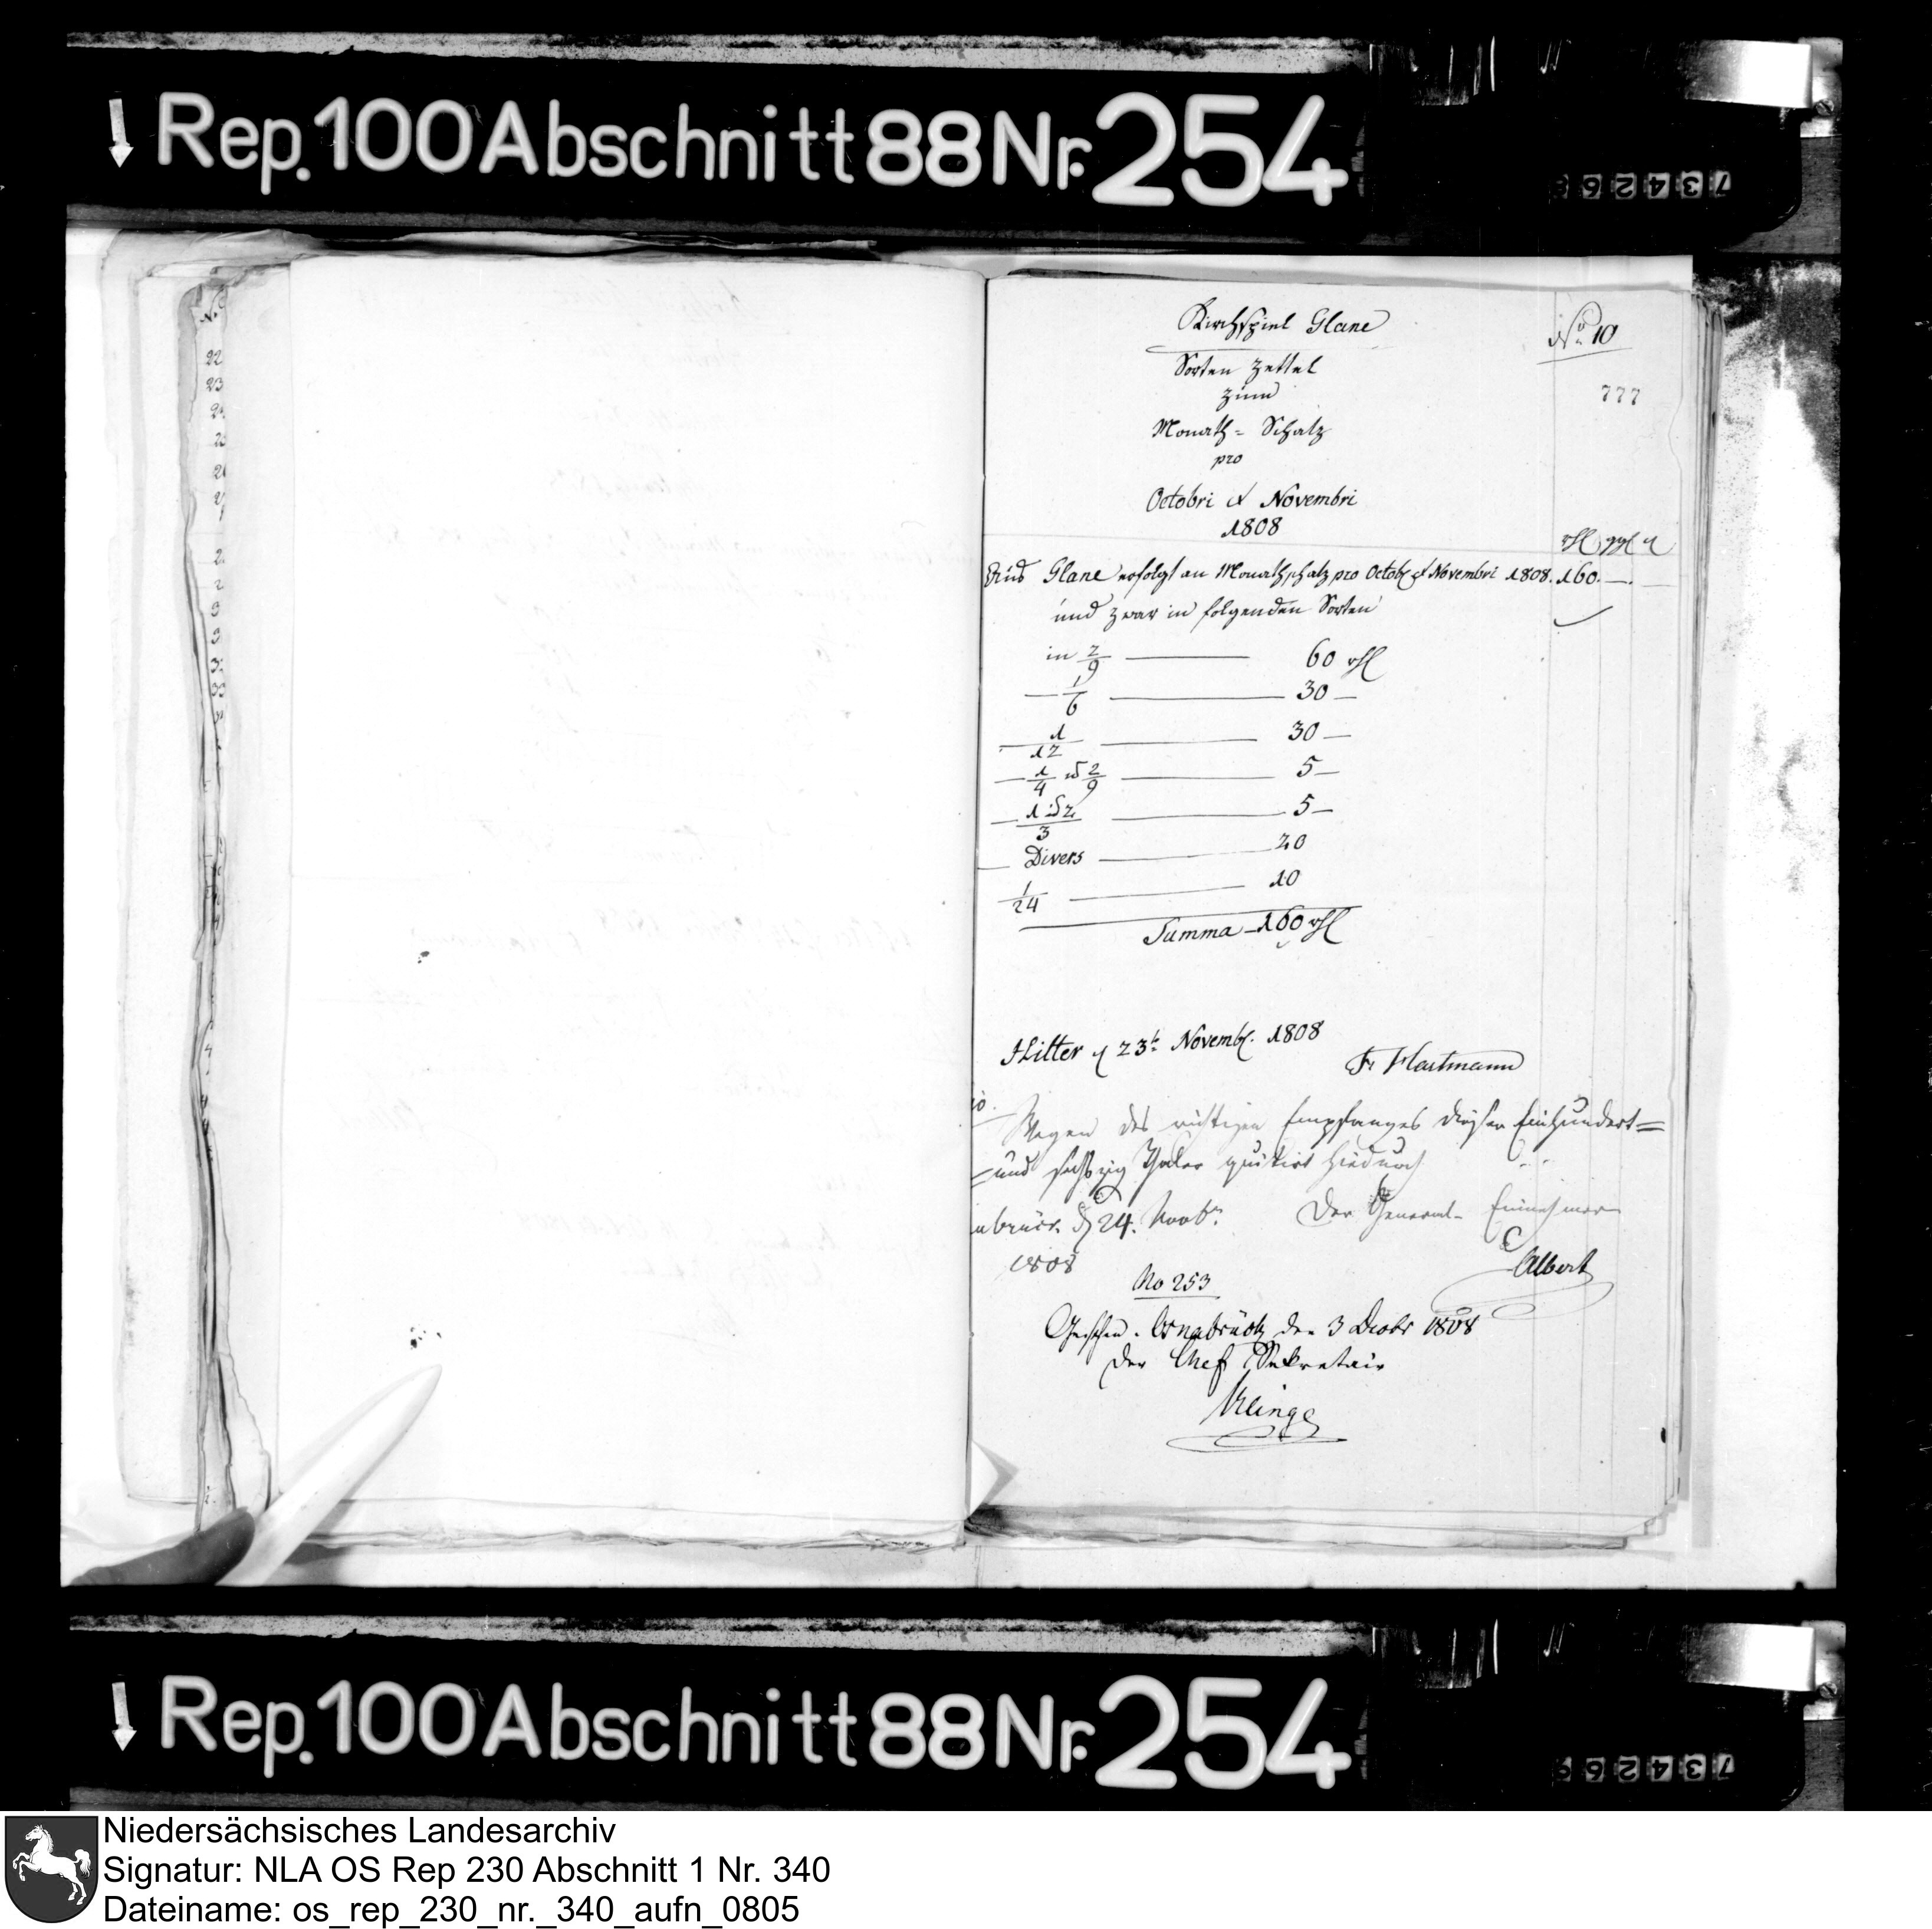 Rep. 100 Abschnitt 88 Nr. 254
734269
N.
22
23
Kirchspiel Glane
No 10
Sorten Zettel
zum
777
Monath = Schatz
pro
Octobri et Novembri
1808
rthl ggl
Aus Glane erfolgt an Monathschatz pro Octobr et Novembri 1808. 160. —. —
und zwar in folgenden Sorten
in 2/9 — 60 rthl
— 1/6 — 30 —
— 1/12 — 30 —
— 1/4 u 2/9 — 5 —
— 1 u 2/3 — 5 —
— Divers — 20
1/24 — 10
Summa — 160 rthl
Hilter d 23t Novemb. 1808
Fr Hartmann
Wegen des richtigen Empfanges dieser Einhundert=
=und sechszig Thaler quitirt hiedurch
nabrück d 24. Novbr.
Der General-Einnehmer
1808
Albert
No 253
Gesehen. Osnabrück den 3 Decbr 1808
Der Chef Sekretair
Klinge
Rep. 100 Abschnitt 88 Nr. 254
734269
Niedersächsisches Landesarchiv
Signatur: NLA OS Rep 230 Abschnitt 1 Nr. 340
Dateiname: os_rep_230_nr._340_aufn_0805